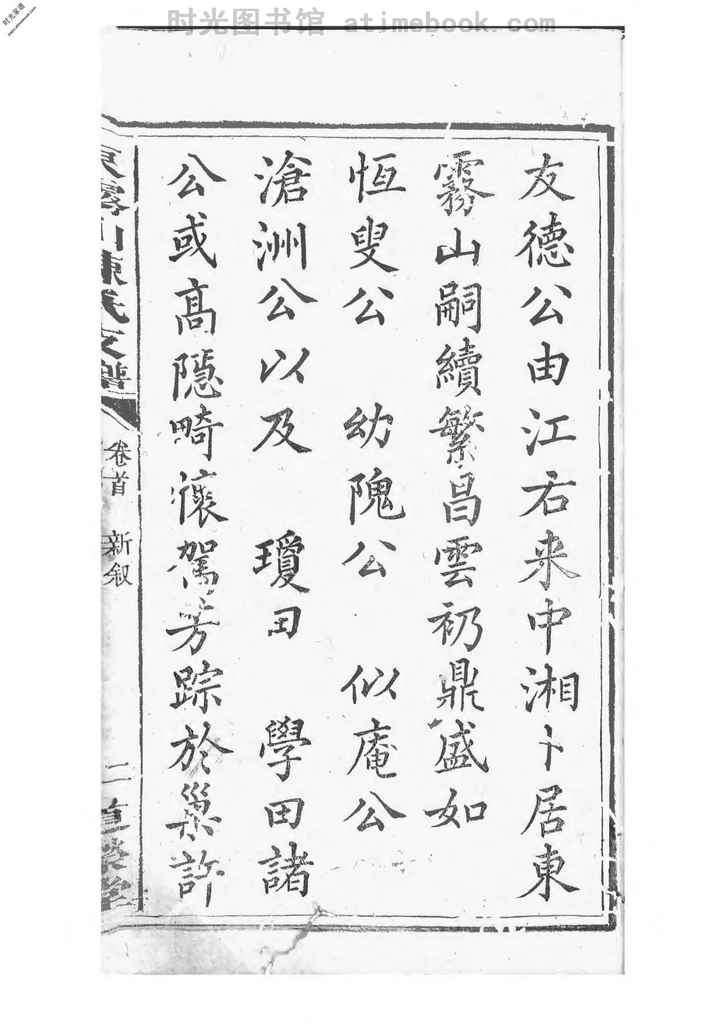 时光图书馆 atimebook.com
友德公由江右来中湘卜居東
霧山嗣續繁昌雲礽鼎盛如
恆叟公 幼隗公 似庵公
滄洲公以及 瓊田 學田諸
公或高隱畸瀤駕芳踪於巢許
東霧山陳氏支譜
卷首 新叙
二